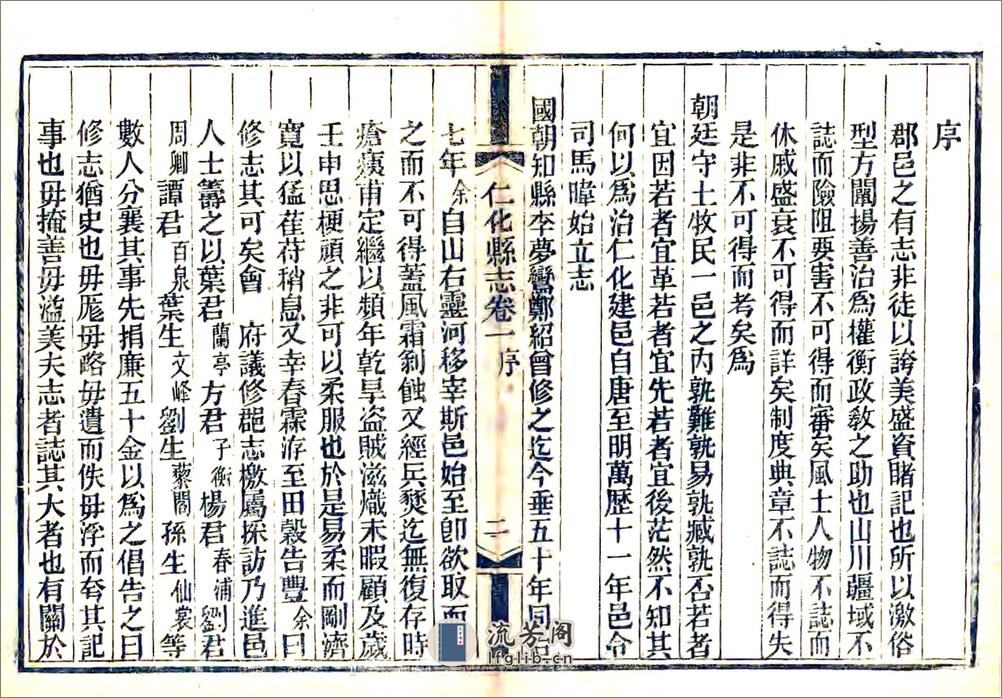 序
郡邑之有志非徒以誇美盛資睹記也所以激俗
型方闡揚善治爲權衡政教之助也山川疆域不
誌而險阻要害不可得而審矣風土人物不誌而
休戚盛衰不可得而詳矣制度典章不誌而得失
是非不可得而考矣爲
朝廷守土牧民一邑之內孰難孰易孰臧孰否若者
宜因若者宜革若者宜先若者宜後茫然不知其
何以爲治仁化建邑自唐至明萬歷十一年邑令
司馬暐始立志
國朝知縣李夢鸞鄭紹曾修之迄今垂五十年同
仁化縣志卷一 序 二
七年余自山右靈河移宰斯邑始至卽欲取而
之而不可得蓋風霜剝蝕又經兵燹迄無復存時
瘡痍甫定繼以頻年乾旱盜賊滋熾未暇顧及歲
壬申思梗頑之非可以柔服也於是易柔而剛濟
寬以猛萑苻稍息又幸春霖洊至田穀告豐余曰
修志其可矣會 府議修郡志檄屬採訪乃進邑
人士籌之以葉君蘭亭方君子衡楊君春浦劉君
周卿譚君百泉葉生文峰劉生藜閣孫生仙裳等
數人分襄其事先捐廉五十金以爲之倡告之曰
修志猶史也毋厖毋略毋遺而佚毋浮而夸其記
事也毋掩善毋溢美夫志者誌其大者也有關於
流芳阁
lfglib.cn